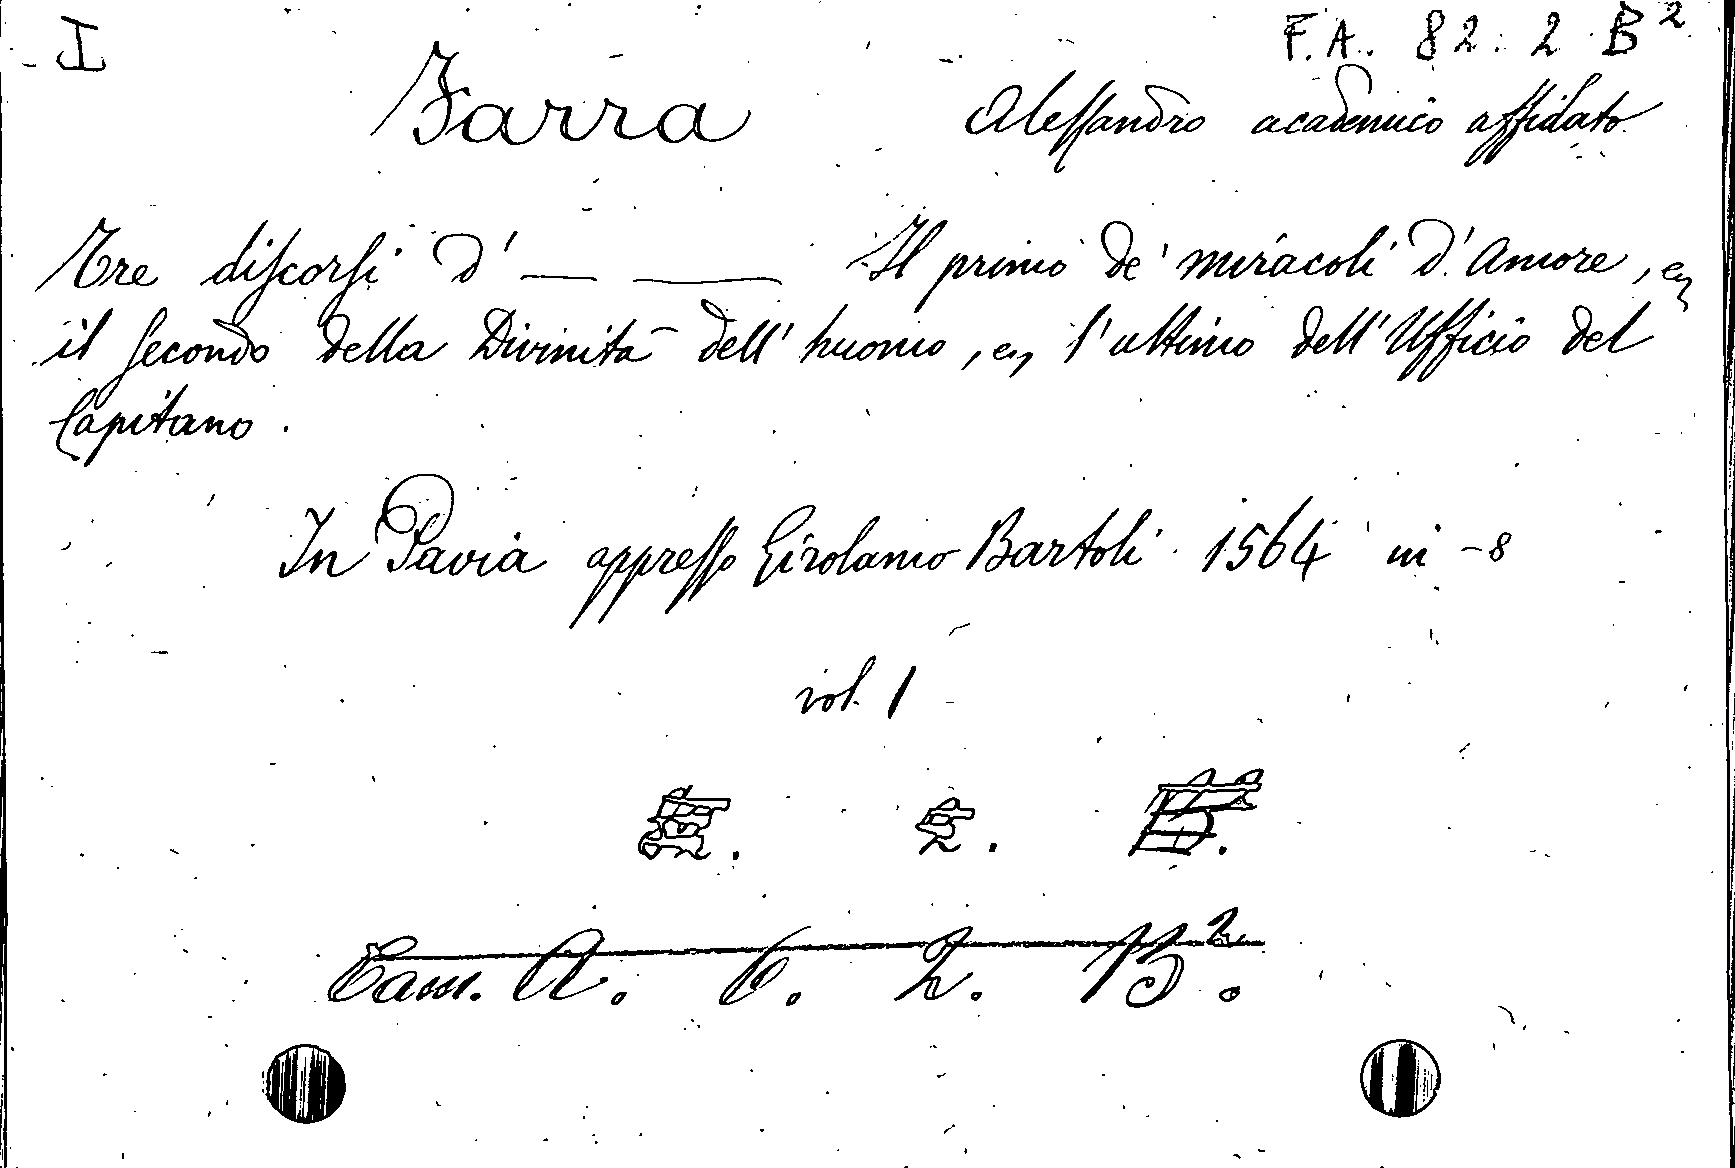 I F.A. 82. 2 B²
Farra Alessandro academico affidato.
Tre discorsi d' — — Il primo de' miracoli d'Amore, et
il secondo della Divinità dell' huomo, et l'ultimo dell' Ufficio del
Capitano.
In Pavia appresso Girolamo Bartoli 1564 in-8
vol. 1
Cam. A. 6. 2. B².